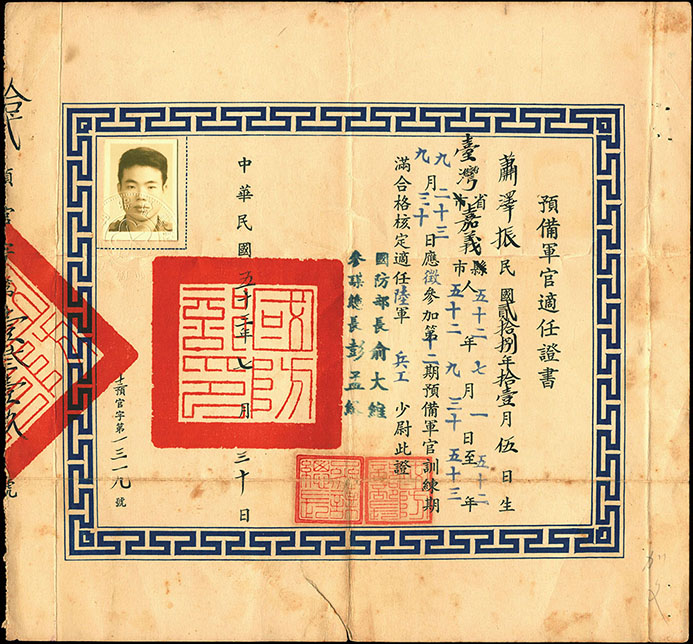 預備軍官適任證書
蕭澤振民國貳拾捌年拾壹月伍日生
臺灣省市嘉義縣市人五十二年七月一日至五十二年
五十二 九 三十 五十三
九 二十三
九月三十日應徵參加第十二期預備軍官訓練期
滿合格核定適任陸軍兵工少尉此證
國防部長俞大維
參謀總長彭孟緝
中華民國五十三年七月三十日
預官字第一三一九號
國防部印